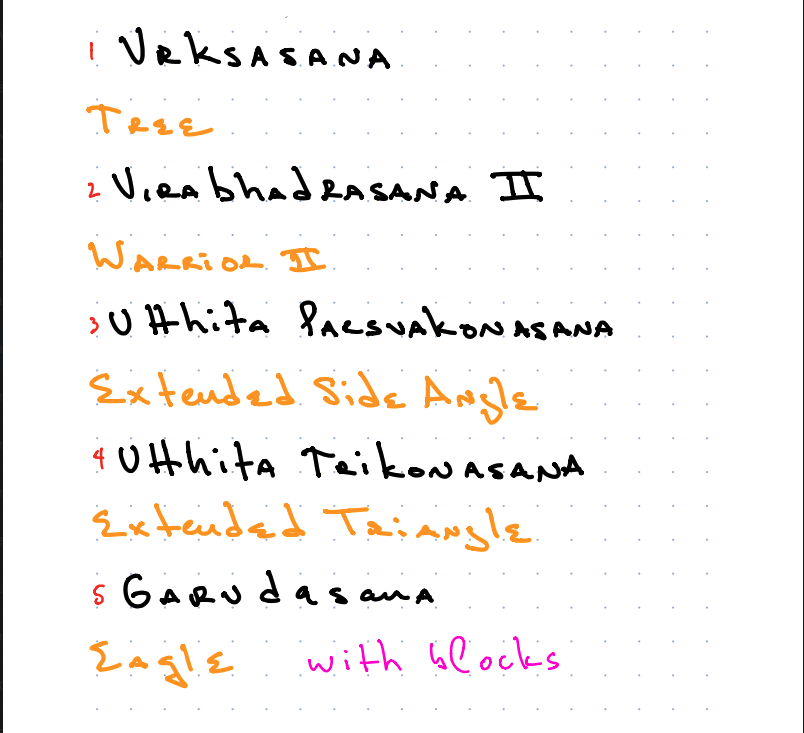 1 Vrksasana
Tree
2 Virabhadrasana II
Warrior II
3 Utthita Parsvakonasana
Extended Side Angle
4 Utthita Trikonasana
Extended Triangle
5 Garudasana
Eagle with blocks